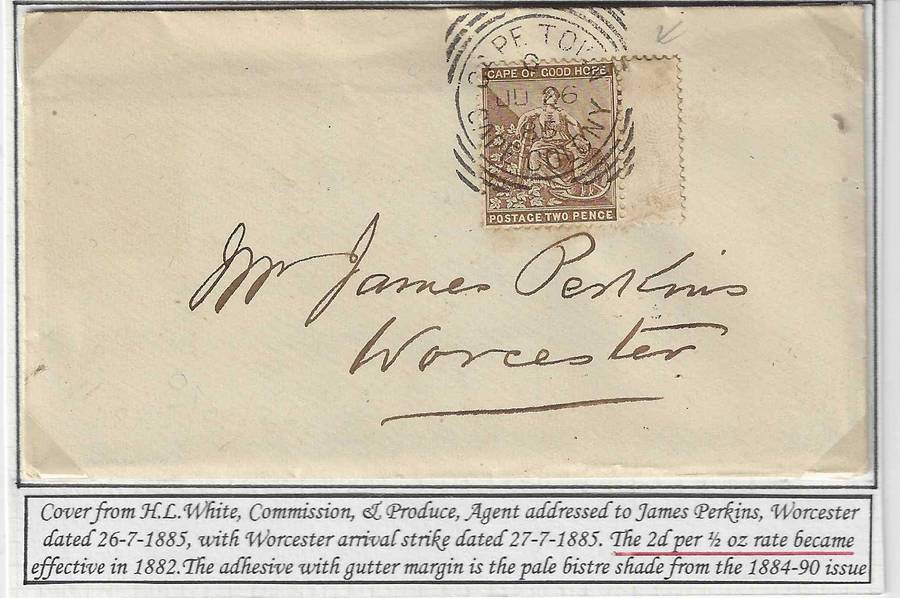 CAPE TOWN
G
JU 26
85
CAPE COLONY
CAPE OF GOOD HOPE
POSTAGE TWO PENCE
Mr James Perkins
Worcester
Cover from H.L.White, Commission, & Produce, Agent addressed to James Perkins, Worcester
dated 26-7-1885, with Worcester arrival strike dated 27-7-1885. The 2d per ½ oz rate became
effective in 1882.The adhesive with gutter margin is the pale bistre shade from the 1884-90 issue